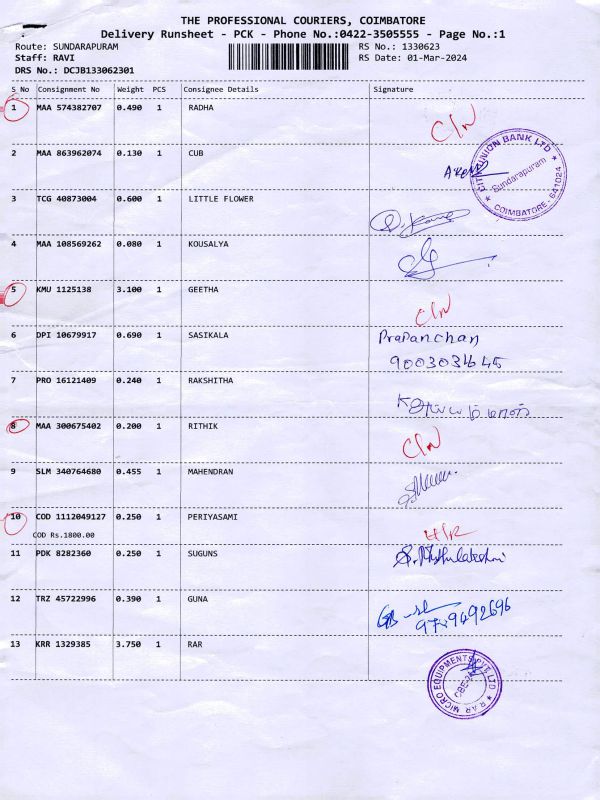 THE PROFESSIONAL COURIERS, COIMBATORE
Delivery Runsheet - PCK - Phone No.:0422-3505555 - Page No.:1
Route: SUNDARAPURAM RS No.: 1330623
Staff: RAVI RS Date: 01-Mar-2024
DRS No.: DCJB133062301
S No Consignment No Weight PCS Consignee Details Signature
1 MAA 574382707 0.490 1 RADHA
2 MAA 863962074 0.130 1 CUB
CITY UNION BANK LTD
Sundarapuram
COIMBATORE - 641024
3 TCG 40873004 0.600 1 LITTLE FLOWER
4 MAA 108569262 0.080 1 KOUSALYA
5 KMU 1125138 3.100 1 GEETHA
6 DPI 10679917 0.690 1 SASIKALA Prapanchan
7 PRO 16121409 0.240 1 RAKSHITHA
8 MAA 300675402 0.200 1 RITHIK
9 SLM 340764680 0.455 1 MAHENDRAN
10 COD 1112049127 0.250 1 PERIYASAMI
COD Rs.1800.00
11 PDK 8282360 0.250 1 SUGUNS
12 TRZ 45722996 0.390 1 GUNA
13 KRR 1329385 3.750 1 RAR
RAR MICRO EQUIPMENTS PVT LTD